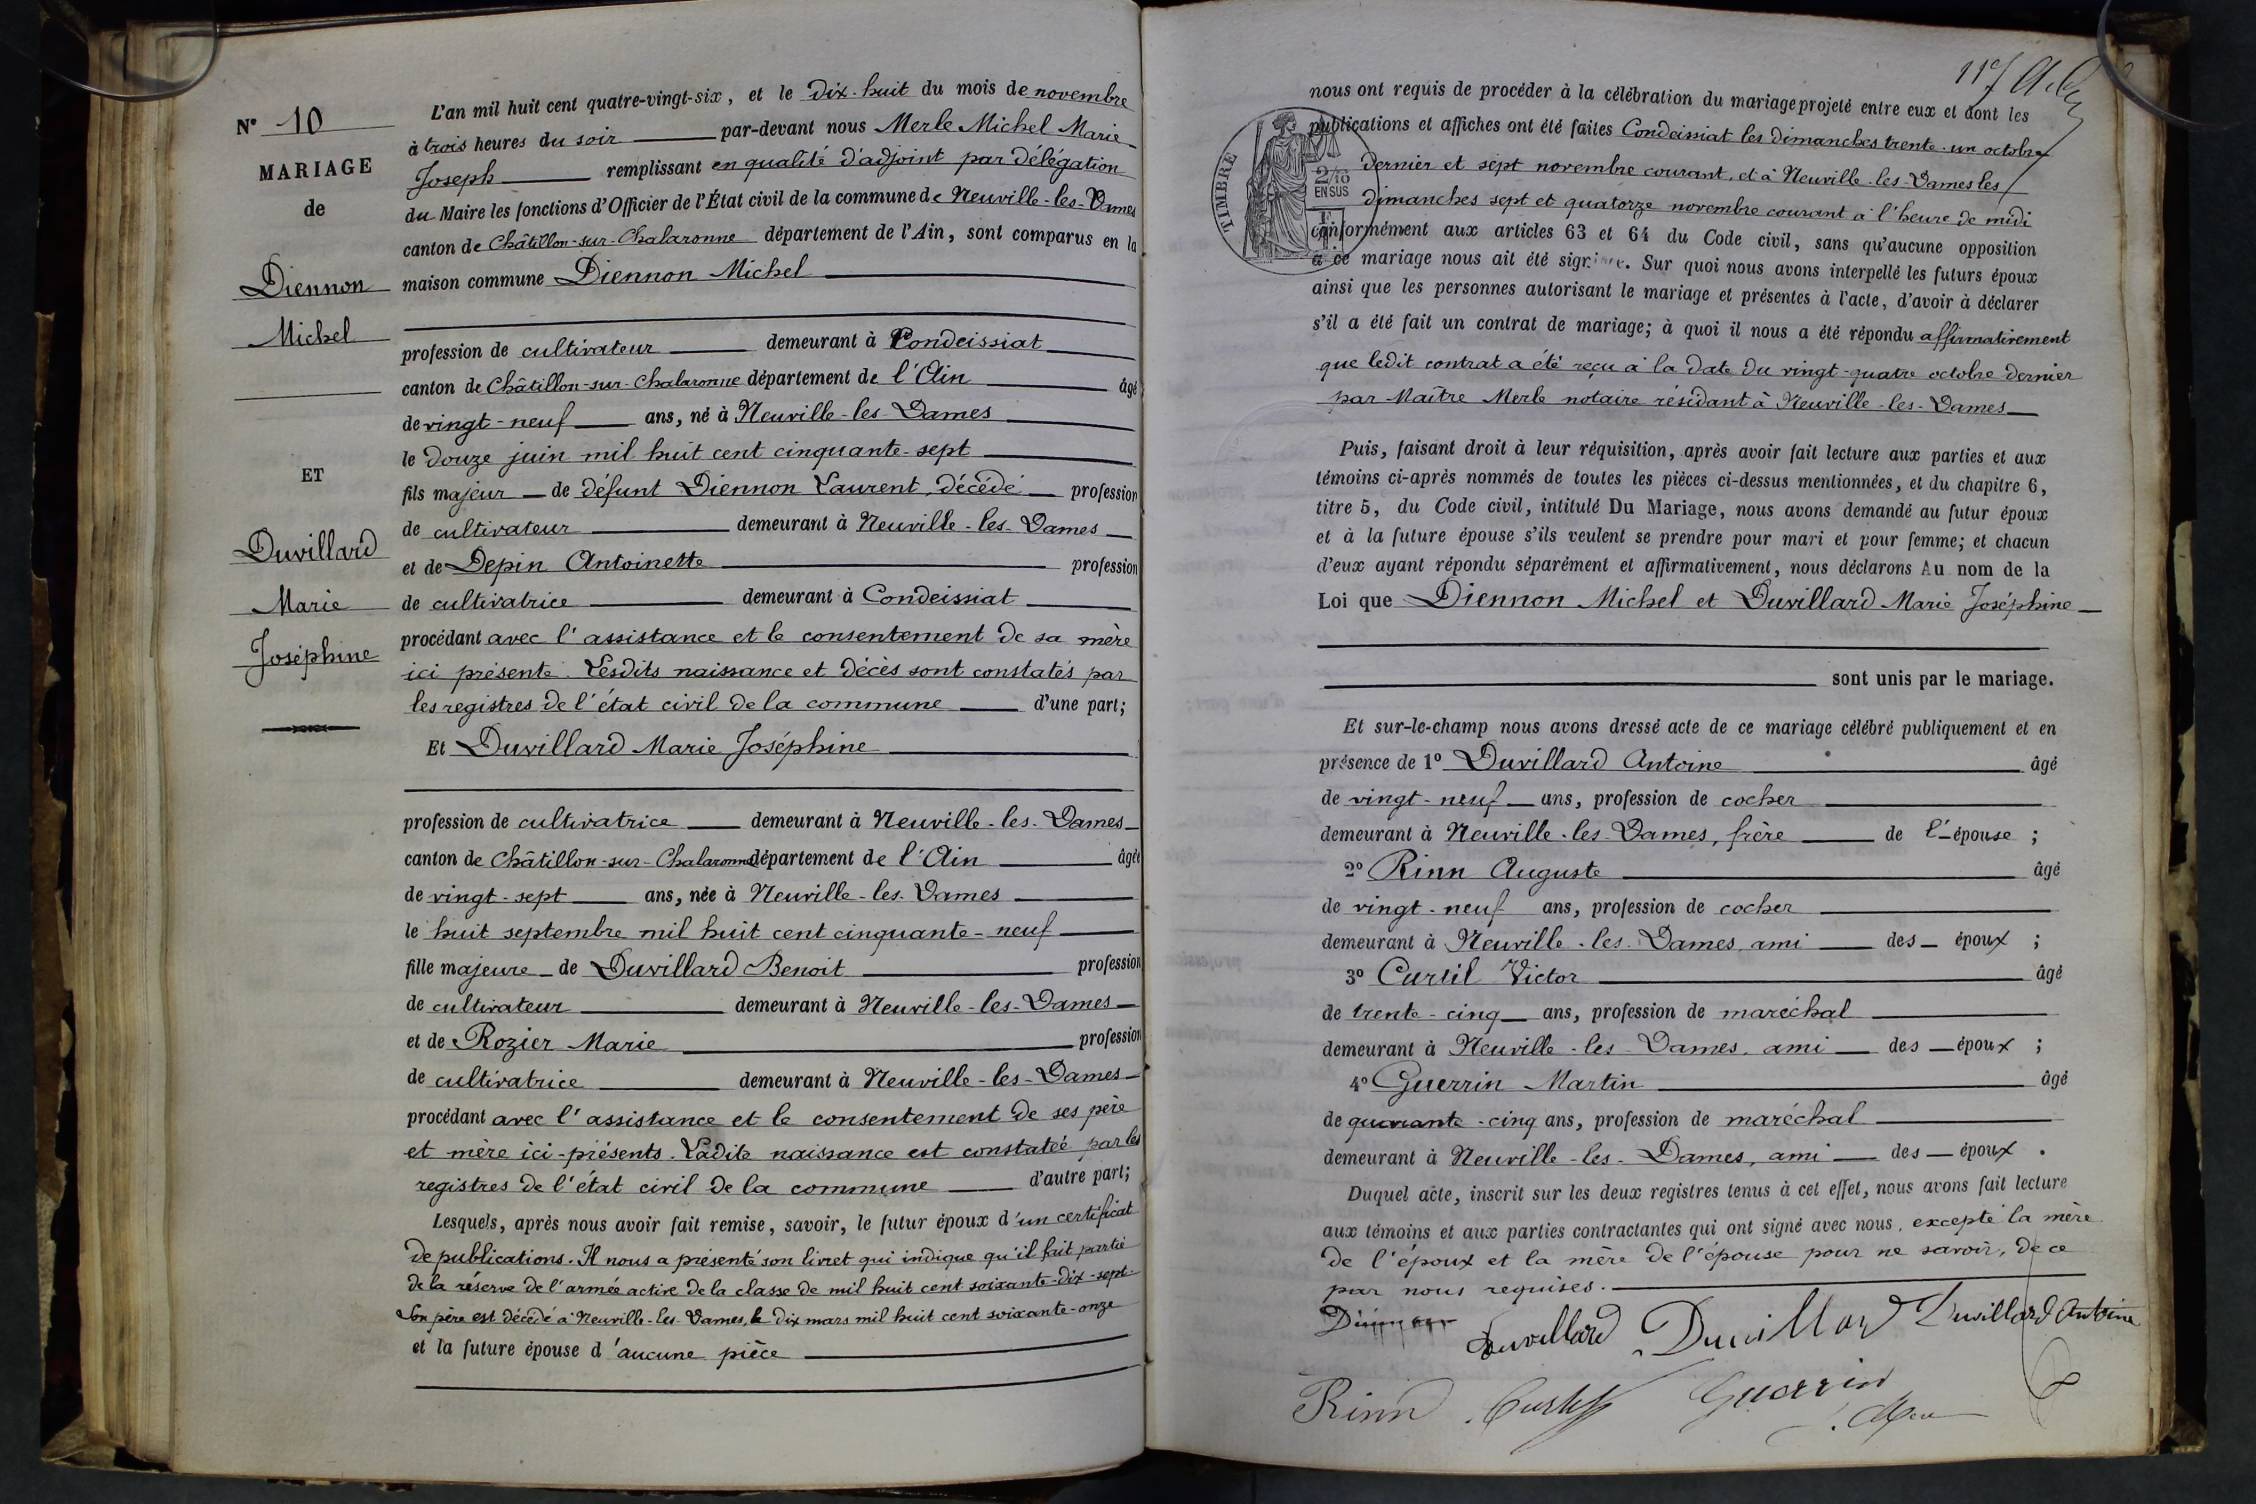 N° 10
MARIAGE
de
Diennon
Michel
ET
Duvillard
Marie
Joséphine
L'an mil huit cent quatre-vingt-six, et le dix-huit du mois de novembre
à trois heures du soir par-devant nous Merle Michel Marie
Joseph remplissant en qualité d'adjoint par délégation
du Maire les fonctions d'Officier de l'État civil de la commune de Neuville-les-Dames
canton de Châtillon-sur-Chalaronne département de l'Ain, sont comparus en la
maison commune Diennon Michel
profession de cultivateur demeurant à Condeissiat
canton de Châtillon-sur-Chalaronne département de l'Ain âgé
de vingt-neuf ans, né à Neuville-les-Dames
le douze juin mil huit cent cinquante-sept
fils majeur de défunt Diennon Laurent, décédé profession
de cultivateur demeurant à Neuville-les-Dames
et de Depin Antoinette profession
de cultivatrice demeurant à Condeissiat
procédant avec l'assistance et le consentement de sa mère
ici présente. Lesdits naissance et décès sont constatés par
les registres de l'état civil de la commune d'une part;
Et Duvillard Marie Joséphine
profession de cultivatrice demeurant à Neuville-les-Dames
canton de Châtillon-sur-Chalaronne département de l'Ain âgée
de vingt-sept ans, née à Neuville-les-Dames
le huit septembre mil huit cent cinquante-neuf
fille majeure de Duvillard Benoit profession
de cultivateur demeurant à Neuville-les-Dames
et de Rozier Marie profession
de cultivatrice demeurant à Neuville-les-Dames
procédant avec l'assistance et le consentement de ses père
et mère ici-présents. Ladite naissance est constatée par les
registres de l'état civil de la commune d'autre part;
Lesquels, après nous avoir fait remise, savoir, le futur époux d'un certificat
de publications. Il nous a présenté son livret qui indique qu'il fait partie
de la réserve de l'armée active de la classe de mil huit cent soixante-dix-sept
Son père est décédé à Neuville-les-Dames, le dix mars mil huit cent soixante-onze
et la future épouse d'aucune pièce
117
nous ont requis de procéder à la célébration du mariage projeté entre eux et dont les
publications et affiches ont été faites Condeissiat les dimanches trente-un octobre
dernier et sept novembre courant, et à Neuville-les-Dames les
dimanches sept et quatorze novembre courant à l'heure de midi
TIMBRE
2/10
EN SUS
conformément aux articles 63 et 64 du Code civil, sans qu'aucune opposition
à ce mariage nous ait été signifiée. Sur quoi nous avons interpellé les futurs époux
ainsi que les personnes autorisant le mariage et présentes à l'acte, d'avoir à déclarer
s'il a été fait un contrat de mariage; à quoi il nous a été répondu affirmativement
que ledit contrat a été reçu à la date du vingt-quatre octobre dernier
par Maître Merle notaire résidant à Neuville-les-Dames
Puis, faisant droit à leur réquisition, après avoir fait lecture aux parties et aux
témoins ci-après nommés de toutes les pièces ci-dessus mentionnées, et du chapitre 6,
titre 5, du Code civil, intitulé Du Mariage, nous avons demandé au futur époux
et à la future épouse s'ils veulent se prendre pour mari et pour femme; et chacun
d'eux ayant répondu séparément et affirmativement, nous déclarons Au nom de la
Loi que Diennon Michel et Duvillard Marie Joséphine
sont unis par le mariage.
Et sur-le-champ nous avons dressé acte de ce mariage célébré publiquement et en
présence de 1° Duvillard Antoine âgé
de vingt-neuf ans, profession de cocher
demeurant à Neuville-les-Dames, frère de l'épouse ;
2° Rinn Auguste âgé
de vingt-neuf ans, profession de cocher
demeurant à Neuville-les-Dames, ami des époux ;
3° Curtil Victor âgé
de trente-cinq ans, profession de maréchal
demeurant à Neuville-les-Dames, ami des époux ;
4° Guerrin Martin âgé
de quarante-cinq ans, profession de maréchal
demeurant à Neuville-les-Dames, ami des époux .
Duquel acte, inscrit sur les deux registres tenus à cet effet, nous avons fait lecture
aux témoins et aux parties contractantes qui ont signé avec nous, excepté la mère
de l'époux et la mère de l'épouse pour ne savoir, de ce
par nous requises.
Diennon Duvillard Duvillard Duvillard Antoine
Rinn Guerrin